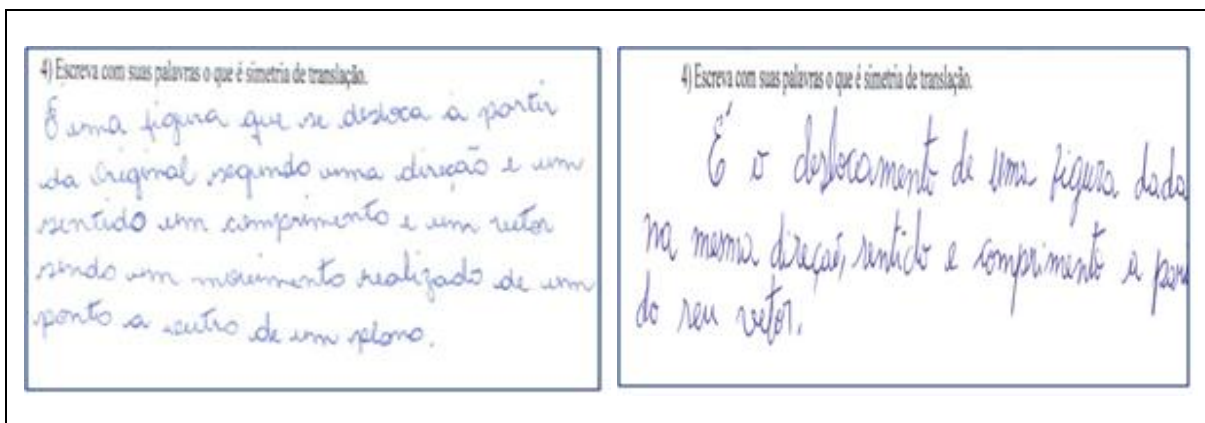 4) Escreva com suas palavras o que é simetria de translação.
É uma figura que se desloca a partir
da Original segundo uma direção e um
sentido um comprimento e um vetor
sendo um movimento realizado de um
ponto a outro de um plano.
4) Escreva com suas palavras o que é simetria de translação.
É o deslocamento de uma figura dada
na mesma direção, sentido e comprimento a par
do seu vetor.